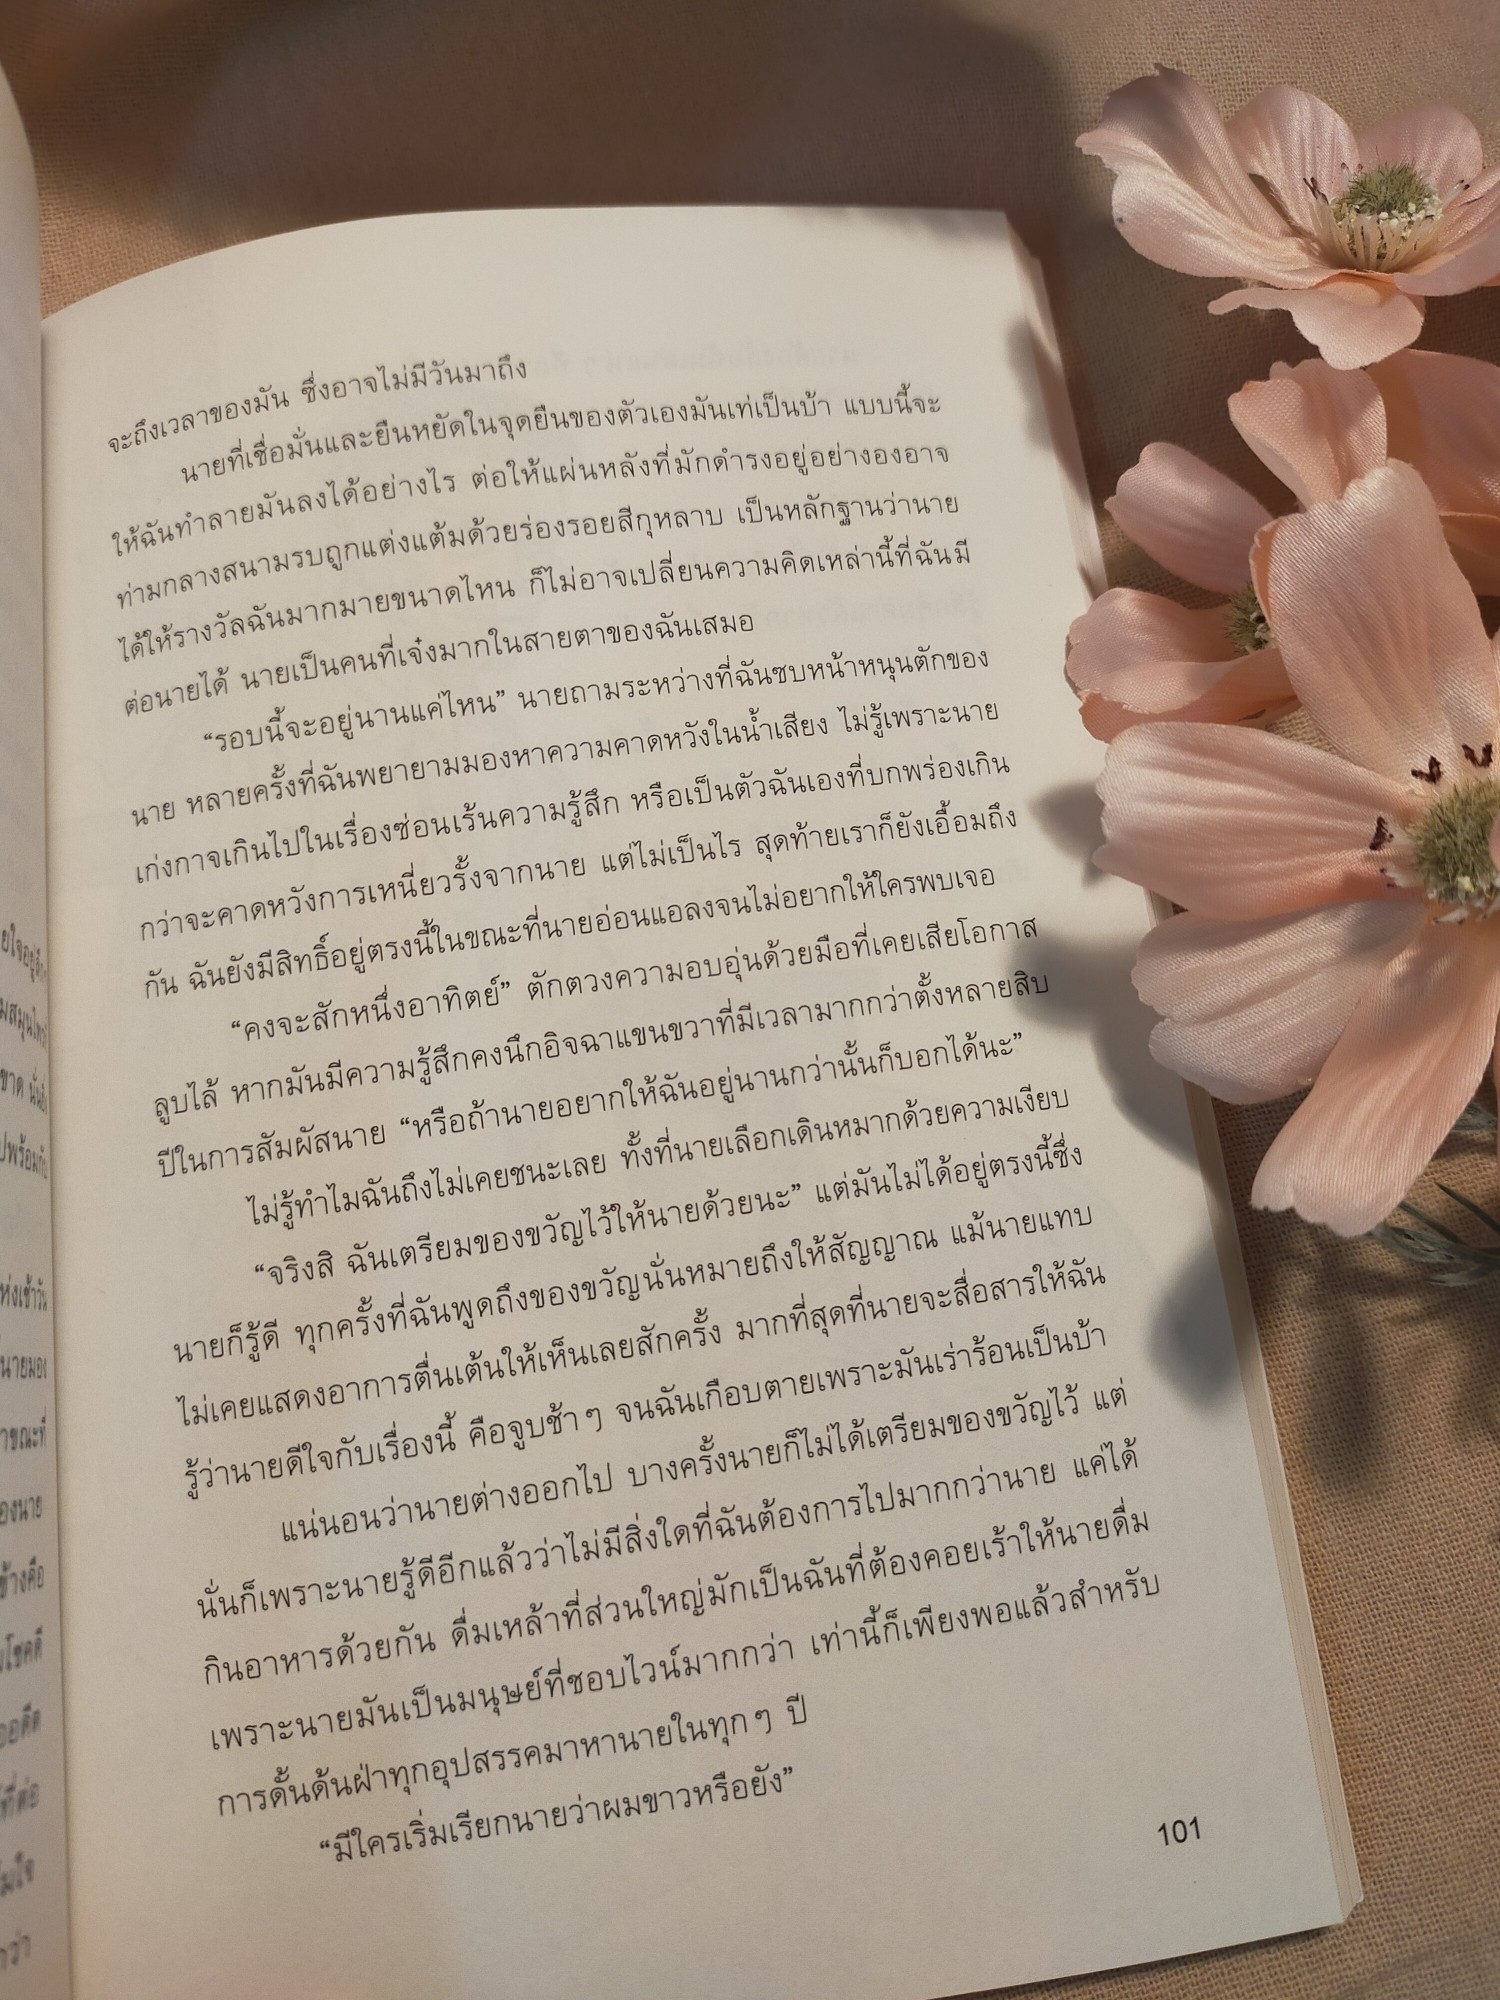 จะถึงเวลาของมัน ซึ่งอาจไม่มีวันมาถึง
นายที่เชื่อมั่นและยืนหยัดในจุดยืนของตัวเองมันเท่เป็นบ้า แบบนี้จะ
ให้ฉันทำลายมันลงได้อย่างไร ต่อให้แผ่นหลังที่มักดำรงอยู่อย่างองอาจ
ท่ามกลางสนามรบถูกแต่งแต้มด้วยร่องรอยสีกุหลาบ เป็นหลักฐานว่านาย
ได้ให้รางวัลฉันมากมายขนาดไหน ก็ไม่อาจเปลี่ยนความคิดเหล่านี้ที่ฉันมี
ต่อนายได้ นายเป็นคนที่เจ๋งมากในสายตาของฉันเสมอ
“รอบนี้จะอยู่นานแค่ไหน” นายถามระหว่างที่ฉันซบหน้าหนุนตักของ
นาย หลายครั้งที่ฉันพยายามมองหาความคาดหวังในน้ำเสียง ไม่รู้เพราะนาย
เก่งกาจเกินไปในเรื่องซ่อนเร้นความรู้สึก หรือเป็นตัวฉันเองที่บกพร่องเกิน
กว่าจะคาดหวังการเหนี่ยวรั้งจากนาย แต่ไม่เป็นไร สุดท้ายเราก็ยังเอื้อมถึง
กัน ฉันยังมีสิทธิ์อยู่ตรงนี้ในขณะที่นายอ่อนแอลงจนไม่อยากให้ใครพบเจอ
“คงจะสักหนึ่งอาทิตย์” ตักตวงความอบอุ่นด้วยมือที่เคยเสียโอกาส
ลูบไล้ หากมันมีความรู้สึกคงนึกอิจฉาแขนขวาที่มีเวลามากกว่าตั้งหลายสิบ
ปีในการสัมผัสนาย “หรือถ้านายอยากให้ฉันอยู่นานกว่านั้นก็บอกได้นะ”
ไม่รู้ทำไมฉันถึงไม่เคยชนะเลย ทั้งที่นายเลือกเดินหมากด้วยความเงียบ
“จริงสิ ฉันเตรียมของขวัญไว้ให้นายด้วยนะ” แต่มันไม่ได้อยู่ตรงนี้ซึ่ง
นายก็รู้ดี ทุกครั้งที่ฉันพูดถึงของขวัญนั่นหมายถึงให้สัญญาณ แม้นายแทบ
ไม่เคยแสดงอาการตื่นเต้นให้เห็นเลยสักครั้ง มากที่สุดที่นายจะสื่อสารให้ฉัน
รู้ว่านายดีใจกับเรื่องนี้ คือจูบช้าๆ จนฉันเกือบตายเพราะมันเร่าร้อนเป็นบ้า
แน่นอนว่านายต่างออกไป บางครั้งนายก็ไม่ได้เตรียมของขวัญไว้ แต่
นั่นก็เพราะนายรู้ดีอีกแล้วว่าไม่มีสิ่งใดที่ฉันต้องการไปมากกว่านาย แค่ได้
กินอาหารด้วยกัน ดื่มเหล้าที่ส่วนใหญ่มักเป็นฉันที่ต้องคอยเร้าให้นายดื่ม
เพราะนายมันเป็นมนุษย์ที่ชอบไวน์มากกว่า เท่านี้ก็เพียงพอแล้วสำหรับ
การดั้นด้นฝ่าทุกอุปสรรคมาหานายในทุกๆ ปี
“มีใครเริ่มเรียกนายว่าผมขาวหรือยัง”
101